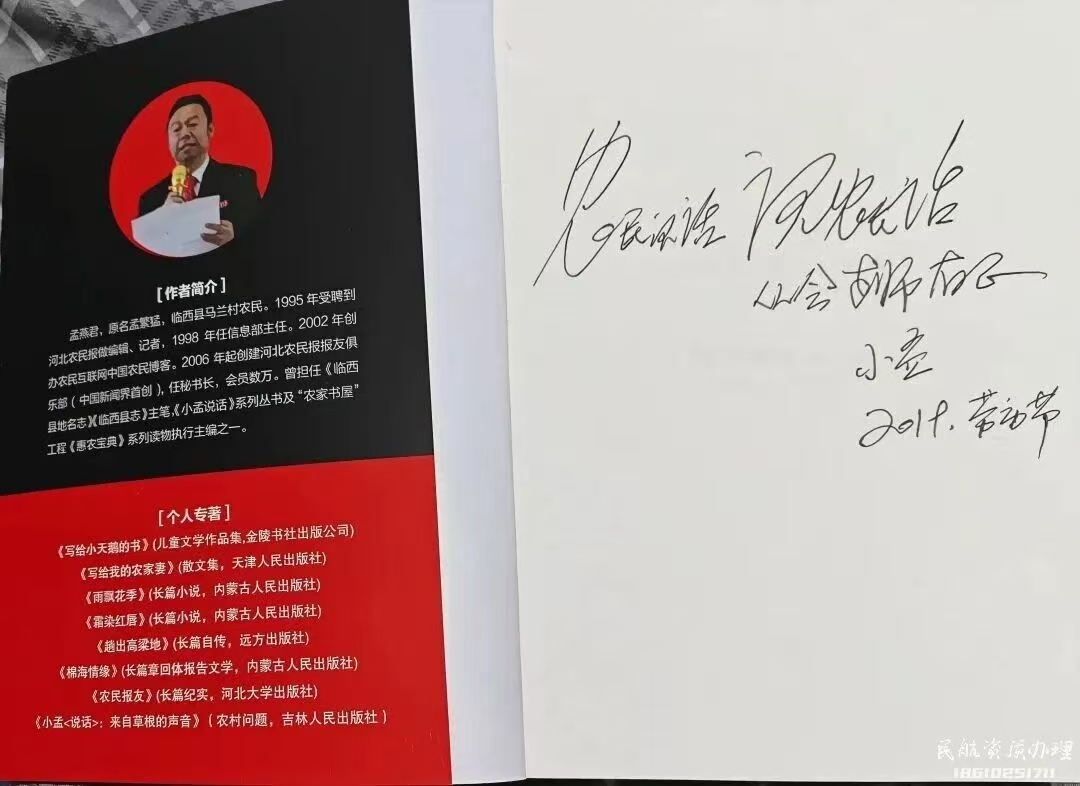 [作者简介]
孟燕君，原名孟繁猛，临西县马兰村农民。1995年受聘到
河北农民报做编辑、记者，1998年任信息部主任。2002年创
办农民互联网中国农民博客。2006年起创建河北农民报报友俱
乐部（中国新闻界首创），任秘书长，会员数万。曾担任《临西
县地名志》《临西县志》主笔，《小孟说话》系列丛书及“农家书屋”
工程《惠农宝典》系列读物执行主编之一。
[个人专著]
《写给小天鹅的书》(儿童文学作品集,金陵书社出版公司)
《写给我的农家妻》(散文集，天津人民出版社)
《雨飘花季》(长篇小说，内蒙古人民出版社)
《霜染红唇》(长篇小说，内蒙古人民出版社)
《趟出高粱地》(长篇自传，远方出版社)
《棉海情缘》(长篇章回体报告文学，内蒙古人民出版社)
《农民报友》(长篇纪实，河北大学出版社)
《小孟<说话>：来自草根的声音》（农村问题，吉林人民出版社）
农民说话 说农民话
小孟
劳动节
民航资质办理
18610251711